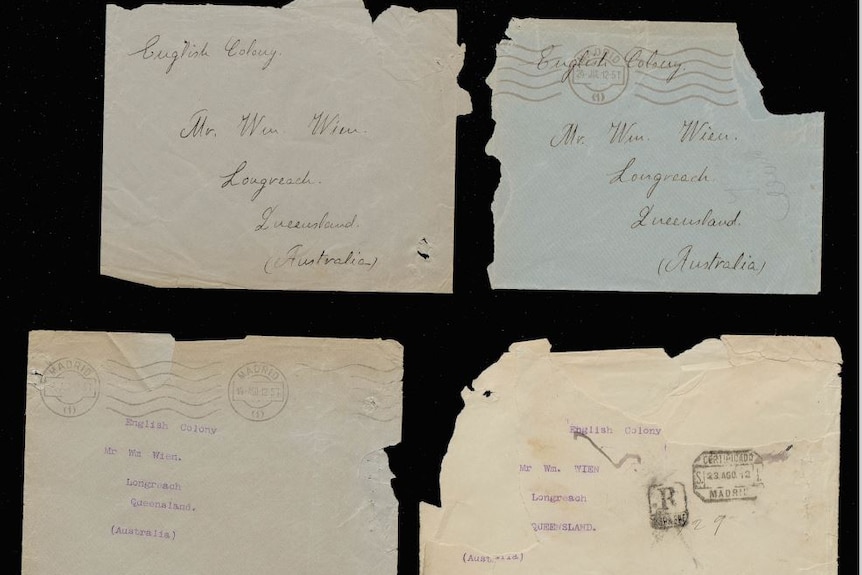 English Colony.
Mr. Wm Wien.
Longreach.
Queensland.
(Australia)
MADRID
(1)
English Colony.
Mr. Wm. Wien.
Longreach.
Queensland.
(Australia)
MADRID
(1)
MADRID
(1)
English Colony
Mr Wm Wien.
Longreach
Queensland.
(Australia)
English Colony
Mr Wm. WIEN
Longreach
QUEENSLAND.
(Australia)
CERTIFICADO
23.AGO.12
MADRID
R
29